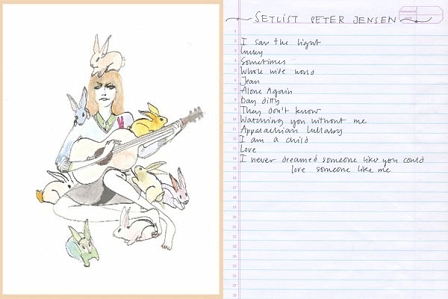 SETLIST PETER JENSEN
I saw the light
Lucky
Sometimes
Whole wide world
Jean
Alone Again
Day ditty
They don't know
Watching you without me
Appalachian Lullaby
I am a child
Love
I never dreamed someone like you could
love someone like me